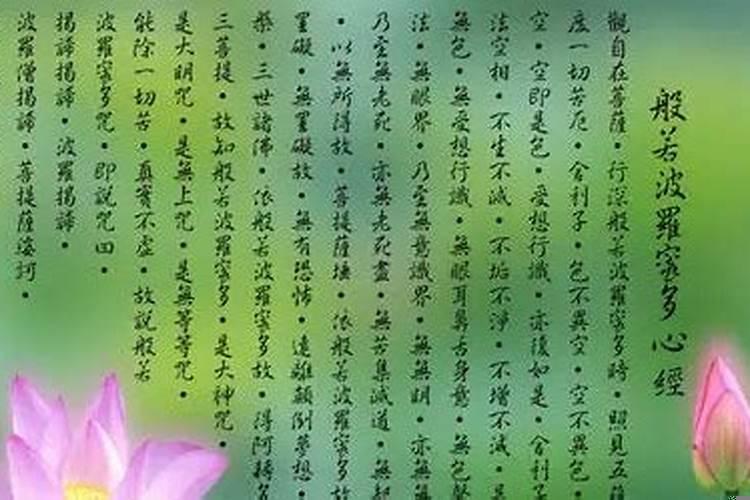 般若波羅蜜多心經
觀自在菩薩・行深般若波羅蜜多時・照見五蘊
度一切苦厄・舍利子・色不異空・空不異色・
空・空即是色・受想行識・亦復如是・舍利子
法空相・不生不滅・不垢不淨・不增不減・是
無色・無受想行識・無眼耳鼻舌身意・無色聲
法・無眼界・乃至無意識界・無無明・亦無
乃至無老死・亦無老死盡・無苦集滅道・無智
・以無所得故・菩提薩埵・依般若波羅蜜多故
罣礙・無罣礙故・無有恐怖・遠離顛倒夢想・
槃・三世諸佛・依般若波羅蜜多故・得阿耨多
三菩提・故知般若波羅蜜多・是大神咒・
是大明咒・是無上咒・是無等等咒・
能除一切苦・真實不虛・故說般若
波羅蜜多咒・即說咒曰・
揭諦揭諦・波羅揭諦・
波羅僧揭諦・菩提薩婆訶・